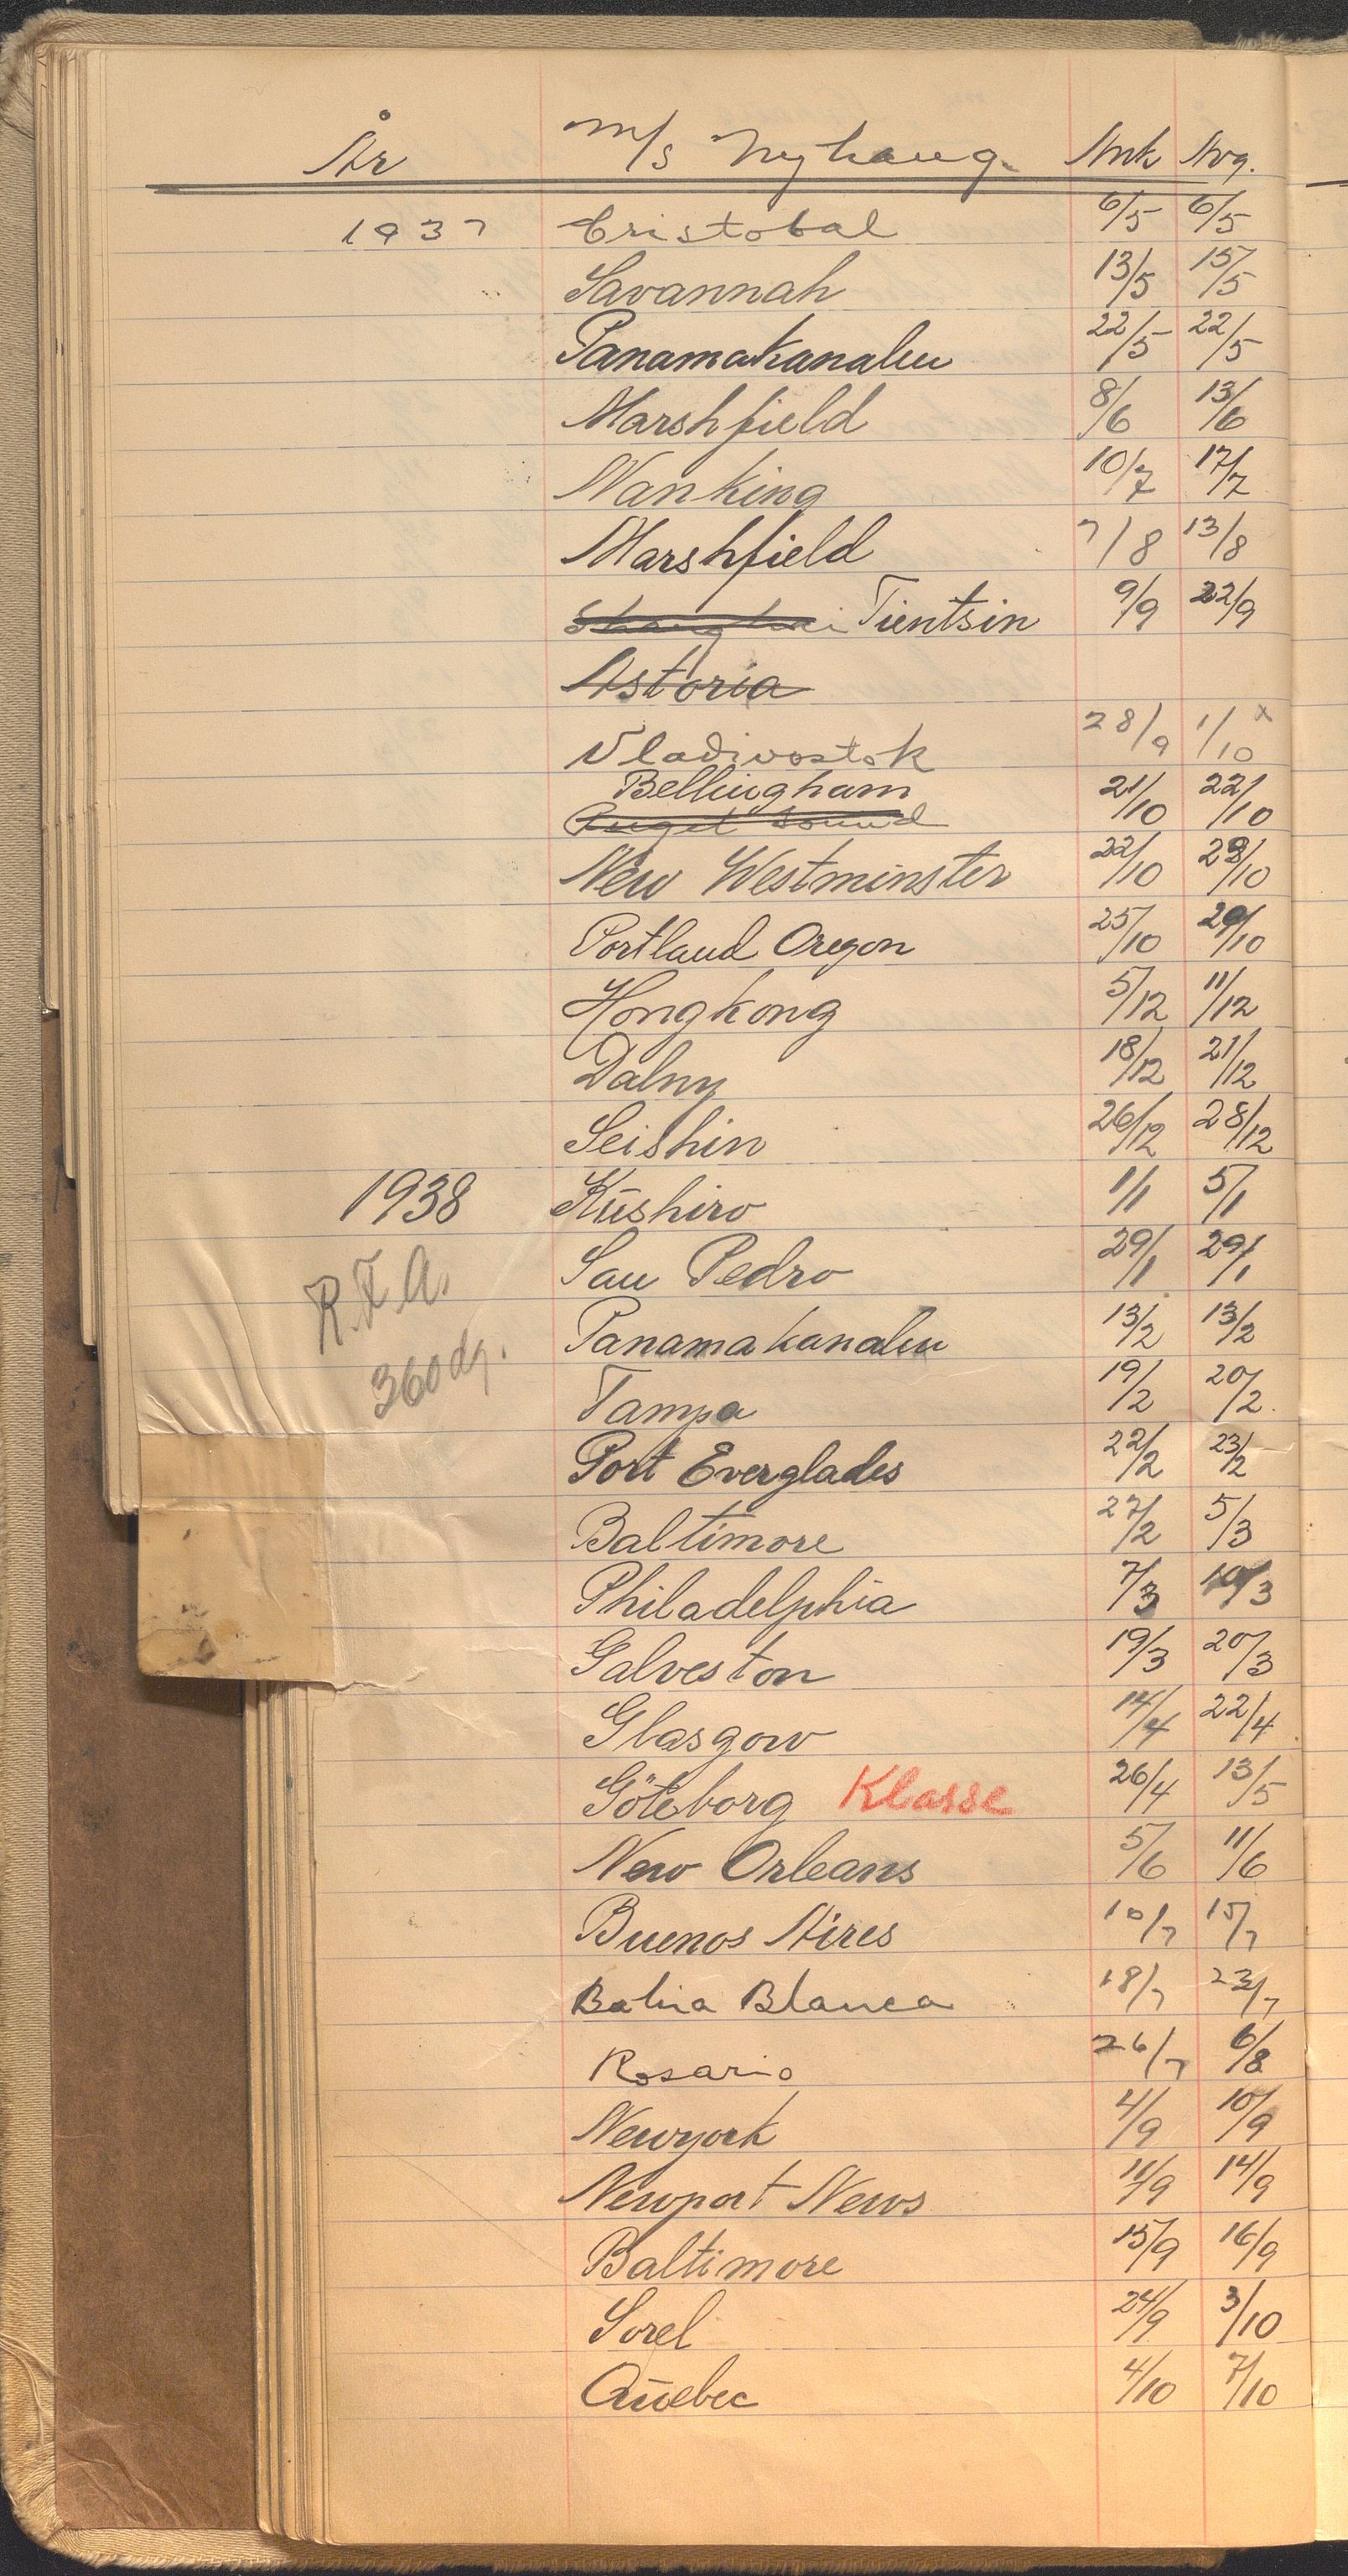 År m/s Nyhaug Ank Avg.
1937 Cristobal 6/5 6/5
Savannah 13/5 15/5
Panamakanalen 22/5 22/5
Marshfield 8/6 13/6
Nanking 10/7 17/7
Marshfield 7/8 13/8
Shanghai Tientsin 9/9 22/9
Astoria
Vladivostok 28/9 1/10 x
Bellingham 21/10 22/10
Puget Sound
New Westminster 22/10 28/10
Portland Oregon 25/10 29/10
Hongkong 5/12 11/12
Dalny 18/12 21/12
Seishin 26/12 28/12
1938 Kūshiro 1/1 5/1
R.F.A. San Pedro 29/1 29/1
Panamakanalen 13/2 13/2
360 dg. Tampa 19/2 20/2.
Port Everglades 22/2 23/2
Baltimore 27/2 5/3
Philadelphia 7/3 10/3
Galveston 19/3 20/3
Glasgow 14/4 22/4
Göteborg Klasse 26/4 13/5
New Orleans 5/6 11/6
Buenos Aires 10/7 15/7
Bahia Blanca 18/7 23/7
Rosario 26/7 6/8
Newyork 4/9 10/9
Newport News 11/9 14/9
Baltimore 15/9 16/9
Sorel 24/9 3/10
Qūebec 4/10 7/10